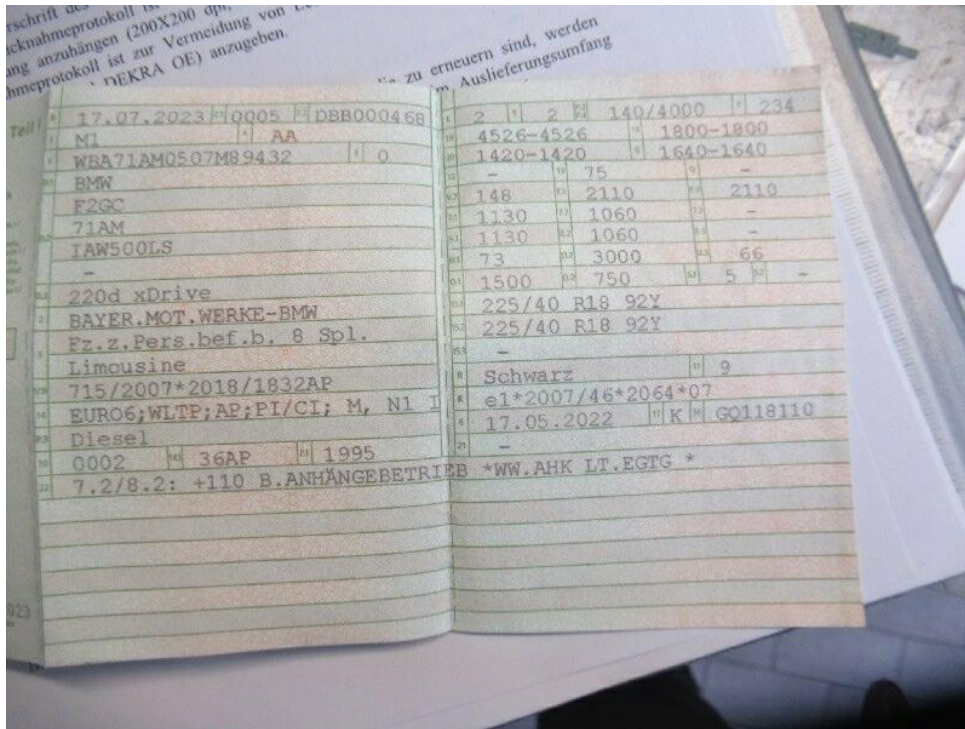 rschrift des
cknahmeprotokoll ist
ng anzuhängen (200X200 dpi,
hmeprotokoll ist zur Vermeidung von
DEKRA OE) anzugeben.
zu erneuern sind, werden
Auslieferungsumfang
17.07.2023 0005 DBB000468
M1 AA
WBA71AM0507M89432 0
BMW
F2GC
71AM
IAW500LS
–
220d xDrive
BAYER.MOT.WERKE-BMW
Fz.z.Pers.bef.b. 8 Spl.
Limousine
715/2007*2018/1832AP
EURO6;WLTP;AP;PI/CI; M, N1 I
Diesel
0002 36AP 1995
7.2/8.2: +110 B.ANHÄNGEBETRIEB *WW.AHK LT.EGTG *
2 2 140/4000 234
4526-4526 1800-1800
1420-1420 1640-1640
– 75 –
148 2110 2110
1130 1060 –
1130 1060 –
73 3000 66
1500 750 5 –
225/40 R18 92Y
225/40 R18 92Y
–
Schwarz 9
e1*2007/46*2064*07
17.05.2022 K GQ118110
–